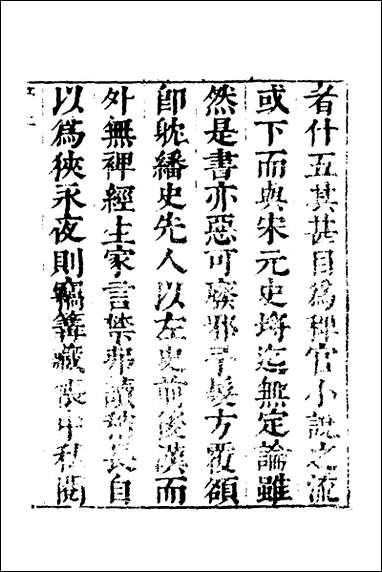 者什五其甚目為稗官小說之流
或下而與宋元史埒迄無定論雖
然是書亦惡可廢邪予髮方覆額
即耽繙史先人以左史前後漢而
外無裨經生家言禁弗讀稍長自
以為狹永夜則竊篝藏帳中私閱